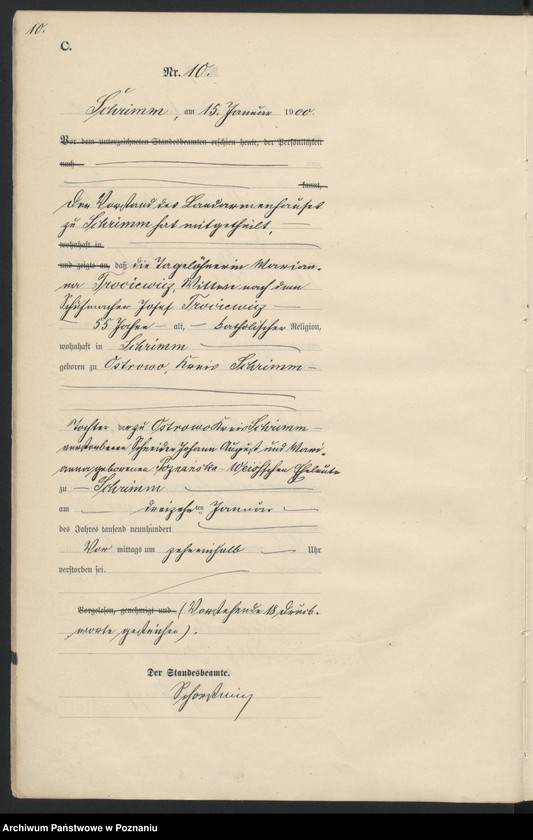 10.
C.
Nr. 10.
Schrimm, am 15. Januar 1900.
Vor dem unterzeichneten Standesbeamten erschien heute, der Persönlichkeit
nach
kannt,
Der Vorstand des Landarmenhauses
zu Schrimm hat mitgetheilt,
wohnhaft in
und zeigte an, daß die Tagelöhnerin Marian-
na Trocicwicz, Wittwe nach dem
Schuhmacher Josef Trocicwicz
55 Jahre alt, katholischer Religion,
wohnhaft in Schrimm
geboren zu Ostrowo, Kreis Schrimm
Tochter der zu Ostrowo Kreis Schrimm
verstorbenen Schneider Johann August und Mari-
anna geborenen Poznańska Eheleute
zu Schrimm
am dreizehnten Januar
des Jahres tausend neunhundert
Vor mittags um zehneinhalb Uhr
verstorben sei.
Vorgelesen, genehmigt und (Vorstehende 18 Druck-
worte gestrichen).
Der Standesbeamte.
Archiwum Państwowe w Poznaniu